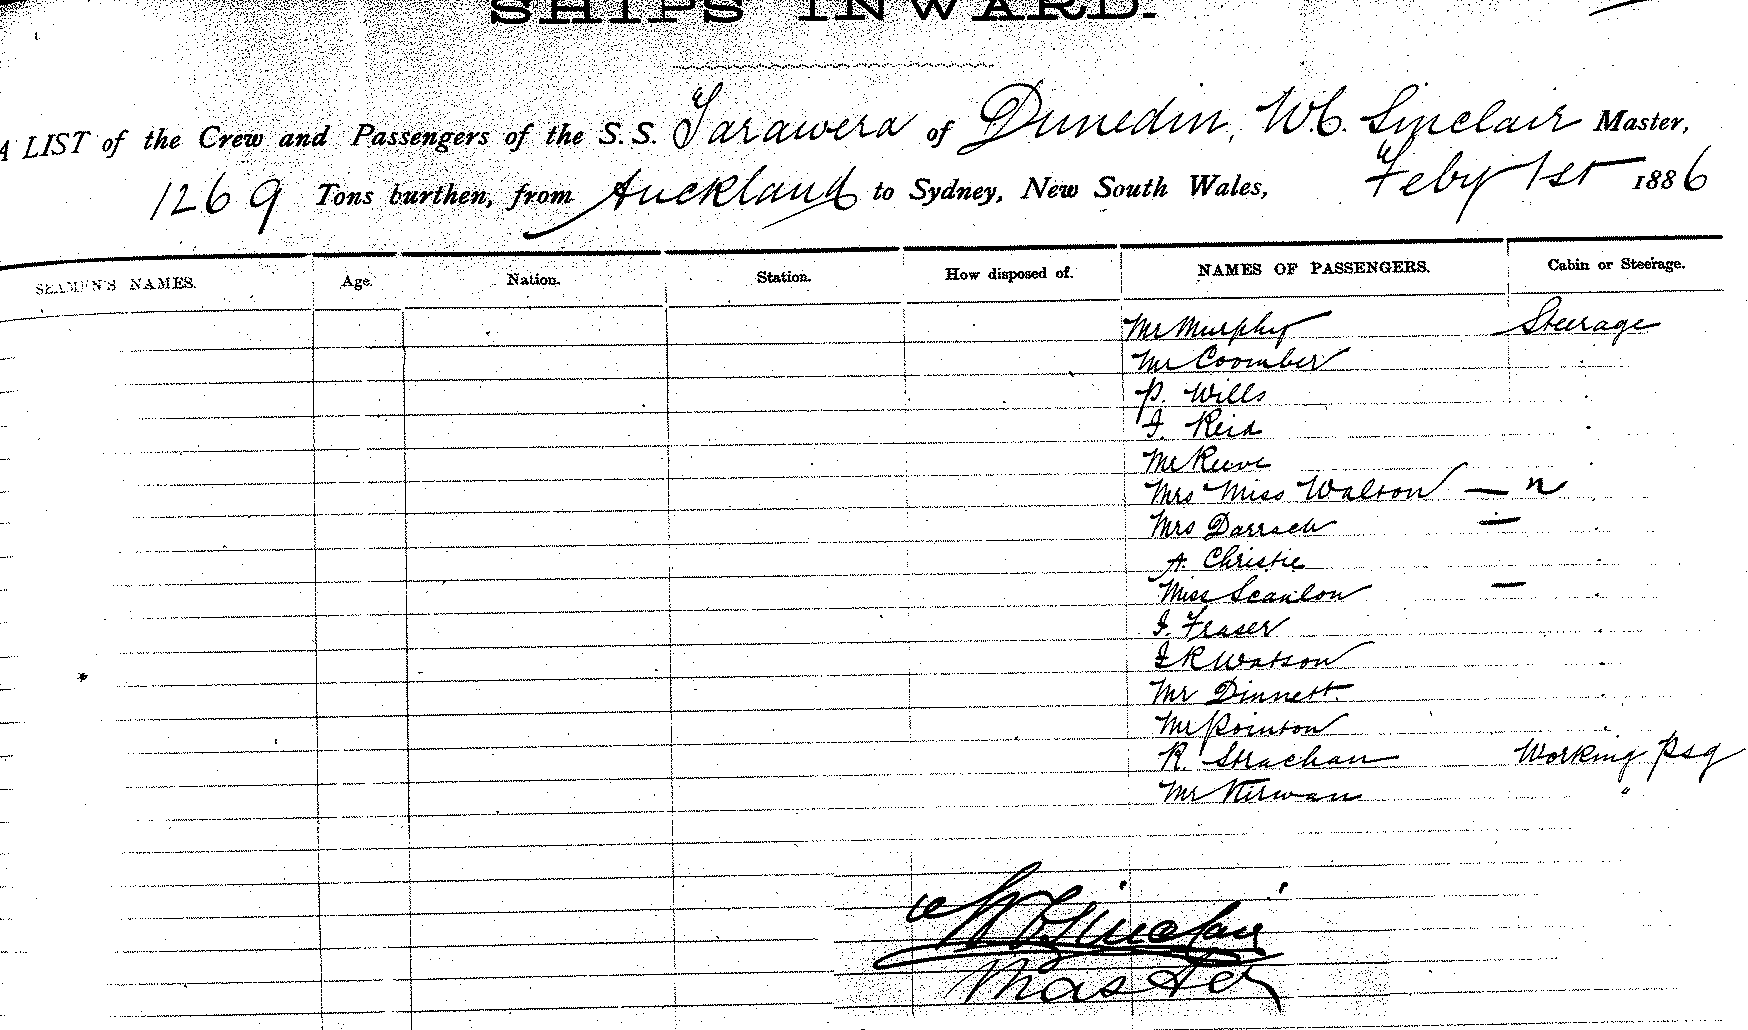 SHIPS INWARD.
A LIST of the Crew and Passengers of the S.S. Tarawera of Dunedin, W.C. Sinclair Master,
1269 Tons burthen, from Auckland to Sydney, New South Wales, Feby 1st 1886
SEAMEN'S NAMES. Age. Nation. Station. How disposed of. NAMES OF PASSENGERS. Cabin or Steerage.
Mr Murphy Steerage
Mr Coomber
P. Wills
J. Reid
Mr Reeve
Mrs Miss Walson — n
Mrs Darrach —
A. Christie
Miss Scanlon —
J. Fraser
J R Watson
Mr Dinnett
Mr Pointon
R. Strachan Working Psg
Mr Kirwan "
W C Sinclair
Master